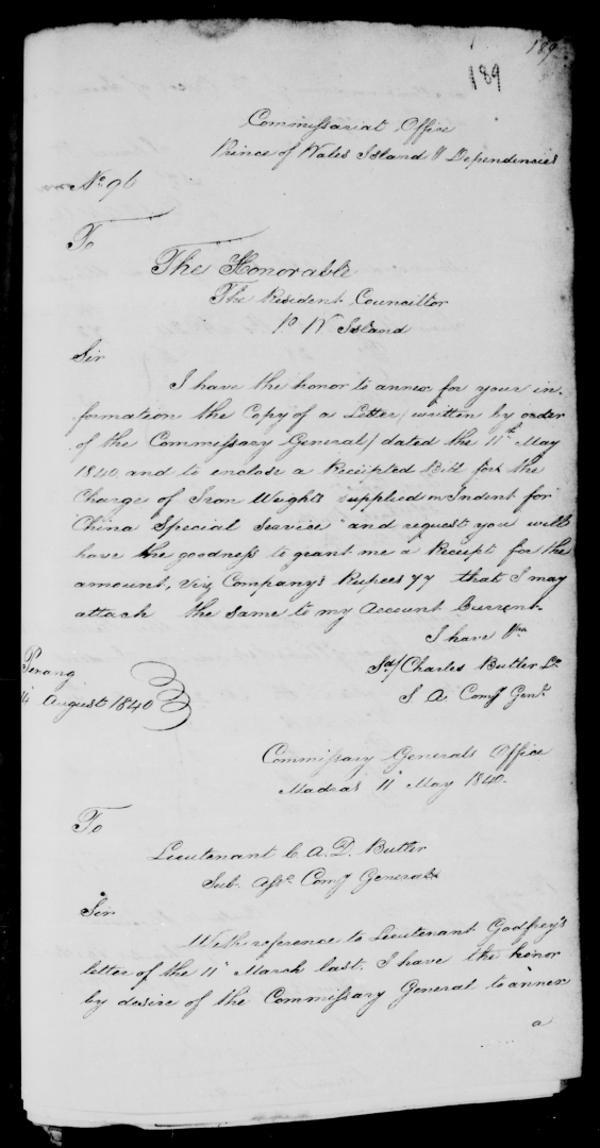 189
189
Commissariat Office
Prince of Wales Island & Dependencies
No. 96
To
The Honorable
The Resident Councillor
P W Island
Sir
I have the honor to annex for your in-
formation the Copy of a Letter/written by order
of the Commissary General/dated the 11th May
1840 and to enclose a Receipted Bill for the
Charge of Iron Weights supplied on Indent for
"China Special Service" and request you will
have the goodness to grant me a Receipt for the
amount, Viz Company's Rupees 77 that I may
attach the same to my Account Current.
I have &ca
Sd/ Charles Butler Lt
S. A. Comy Genl
Penang
August 1840
Commissary Generals Office
Madras 11th May 1840.
To
Lieutenant C. A. D. Butler
Sub. Asst. Comy General
Sir
With reference to Lieutenant Godfrey's
letter of the 11th March last, I have the honor
by desire of the Commissary General to annex
a